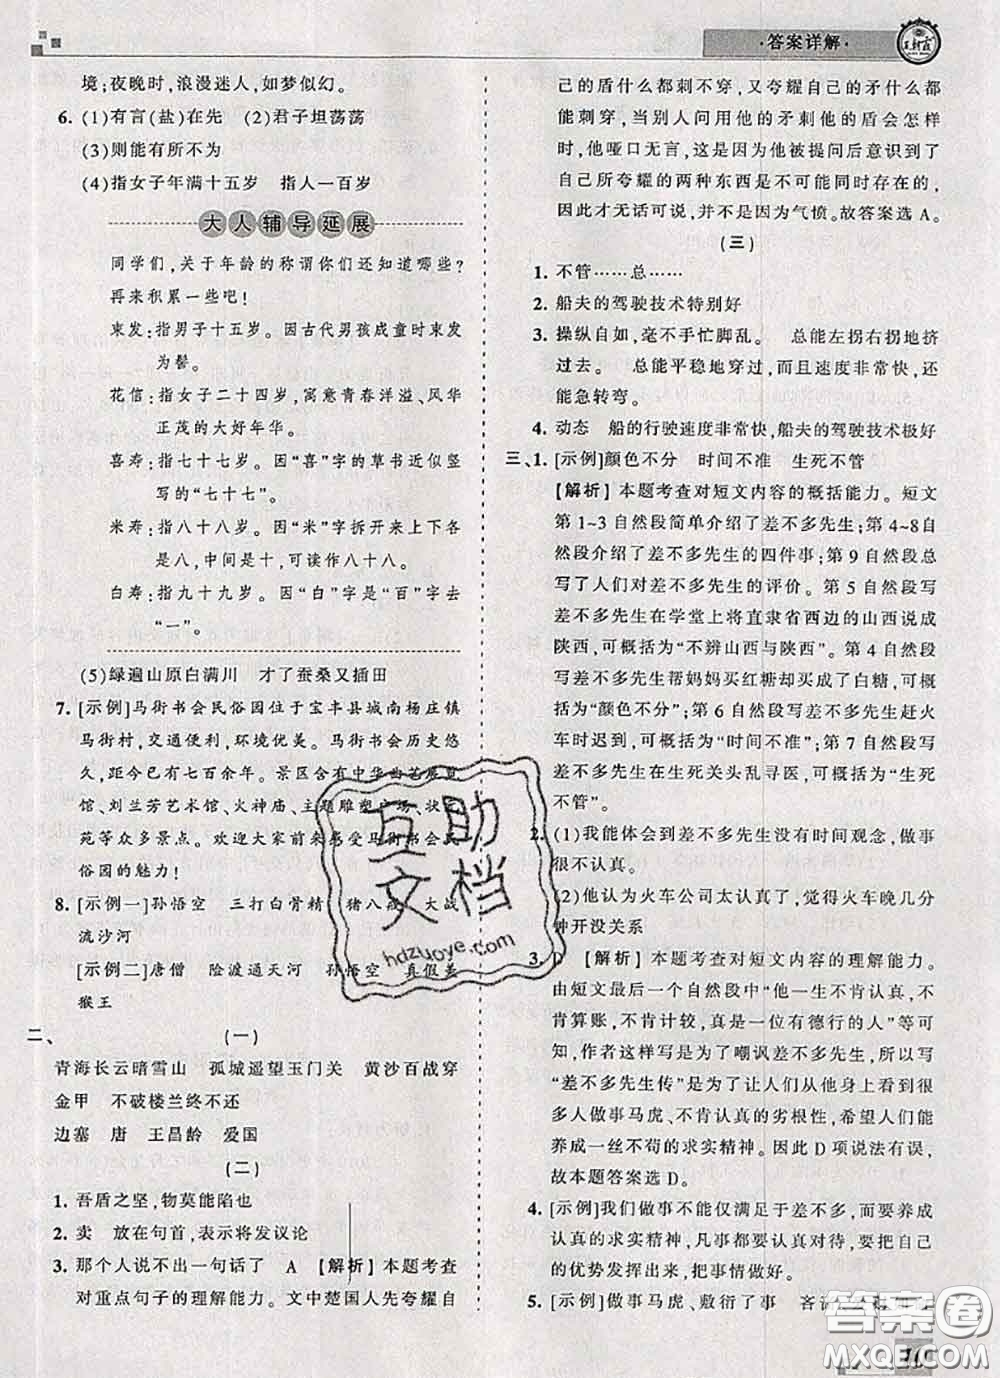 ·答案详解·
境;夜晚时,浪漫迷人,如梦似幻。
6. (1)有言(盐)在先 (2)君子坦荡荡
(3)则能有所不为
(4)指女子年满十五岁 指人一百岁
大人辅导延展
同学们,关于年龄的称谓你们还知道哪些?
再来积累一些吧!
束发:指男子十五岁。因古代男孩成童时束发
为髻。
花信:指女子二十四岁,寓意青春洋溢、风华
正茂的大好年华。
喜寿:指七十七岁。因“喜”字的草书近似竖
写的“七十七”。
米寿:指八十八岁。因“米”字拆开来上下各
是八,中间是十,可读作八十八。
白寿:指九十九岁。因“白”字是“百”字去
“一”。
(5)绿遍山原白满川 才了蚕桑又插田
7. [示例]马街书会民俗园位于宝丰县城南杨庄镇
马街村,交通便利,环境优美。马街书会历史悠
久,距今已有七百余年。景区含有中华曲艺展览
馆、刘兰芳艺术馆、火神庙、主题雕塑广场、状元
苑等众多景点。欢迎大家前来感受马街书会民
俗园的魅力!
8. [示例一]孙悟空 三打白骨精 猪八戒 大战
流沙河
[示例二]唐僧 险渡通天河 孙悟空 真假美
猴王
二、 (一)
青海长云暗雪山 孤城遥望玉门关 黄沙百战穿
金甲 不破楼兰终不还
边塞 唐 王昌龄 爱国
(二)
1. 吾盾之坚,物莫能陷也
2. 卖 放在句首,表示将发议论
3. 那个人说不出一句话了 A 【解析】本题考查
对重点句子的理解能力。文中楚国人先夸耀自
己的盾什么都刺不穿,又夸耀自己的矛什么都
能刺穿,当别人问用他的矛刺他的盾会怎样
时,他哑口无言,这是因为他被提问后意识到了
自己所夸耀的两种东西是不可能同时存在的,
因此才无话可说,并不是因为气愤。故答案选 A。
(三)
1. 不管……总……
2. 船夫的驾驶技术特别好
3. 操纵自如,毫不手忙脚乱。 总能左拐右拐地挤
过去。 总能平稳地穿过,而且速度非常快,还
能急转弯。
4. 动态 船的行驶速度非常快,船夫的驾驶技术极好
三、1. [示例]颜色不分 时间不准 生死不管
【解析】本题考查对短文内容的概括能力。短文
第 1~3 自然段简单介绍了差不多先生;第 4~8 自
然段介绍了差不多先生的四件事;第 9 自然段总
写了人们对差不多先生的评价。第 5 自然段写
差不多先生在学堂上将直隶省西边的山西说成
陕西,可概括为“不辨山西与陕西”。第 4 自然
段写差不多先生帮妈妈买红糖成了白糖,可概
括为“颜色不分”;第 6 自然段写差不多先生赶火
车时迟到,可概括为“时间不准”;第 7 自然段写
差不多先生在生死关头乱寻医,可概括为“生死
不管”。
2. (1)我能体会到差不多先生没有时间观念,做事
很不认真。
(2)他认为火车公司太认真了,觉得火车晚几分
钟开没关系
3. D 【解析】本题考查对短文内容的理解能力。
由短文最后一个自然段中“他一生不肯认真,不
肯算账,不肯计较,真是一位有德行的人”等可
知,作者这样写是为了嘲讽差不多先生。所以,
写“差不多先生传”是为了让人们从他身上看到
很多人做事马虎、不肯认真的劣根性,希望人们能
养成一丝不苟的求实精神。因此 D 项说法有误。
故本题答案选 D。
4. [示例]我们做事不能仅满足于差不多,而要有
的求实精神,凡事都要认真对待,要把自己
的优势发挥出来,把事情做好。
5. [示例]做事马虎、敷衍了事
互助
文档
hdzuoye.com
答案圈
MXQE.COM